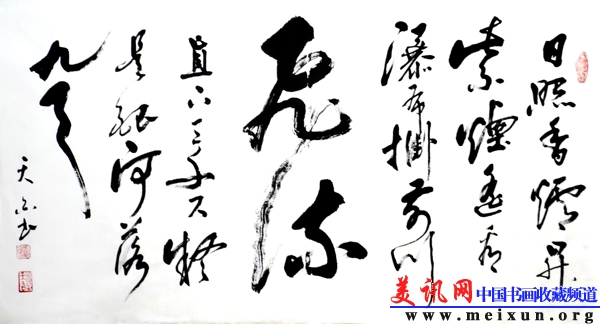 日照香爐生
紫煙遙看
瀑布掛前川
飛流
直下三千尺疑
是銀河落
九天
美讯网 中国书画收藏频道
www.meixun.org